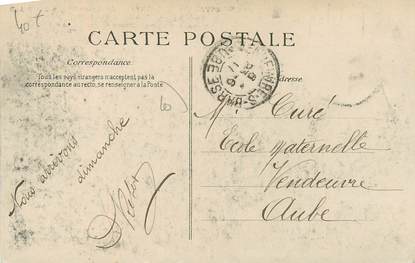 40t
CARTE POSTALE
Correspondance.
Tous les pays étrangers n'acceptent pas la
correspondance au recto, se renseigner à la Poste
Adresse
Nous arrivons
dimanche
M Curé
Ecole maternelle
Vendeuvre
Aube